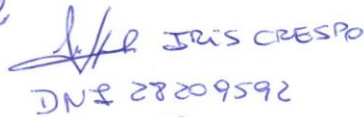 IRIS CRESPO
DNI 28209592